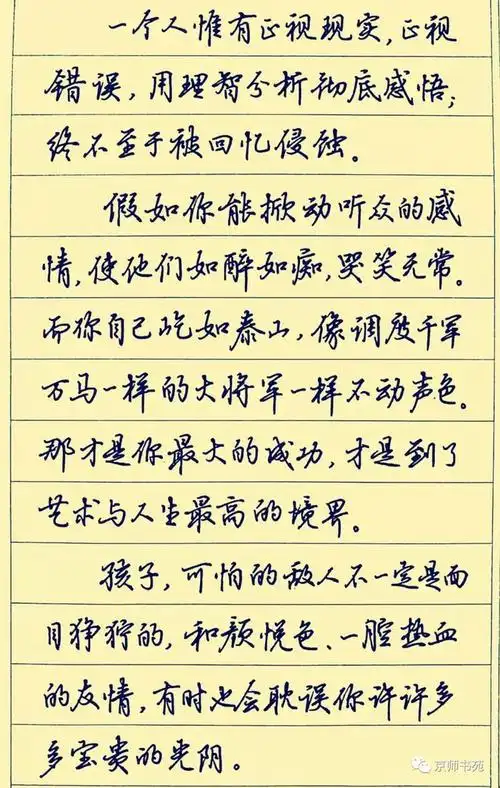 一个人惟有正视现实,正视
错误,用理智分析彻底感悟;
终不至于被回忆侵蚀。
假如你能掀动听众的感
情,使他们如醉如痴,哭笑无常。
而你自己屹如泰山,像调度千军
万马一样的大将军一样不动声色。
那才是你最大的成功,才是到了
艺术与人生最高的境界。
孩子,可怕的敌人不一定是面
目狰狞的,和颜悦色、一腔热血
的友情,有时也会耽误你许许多
多宝贵的光阴。
京师书苑